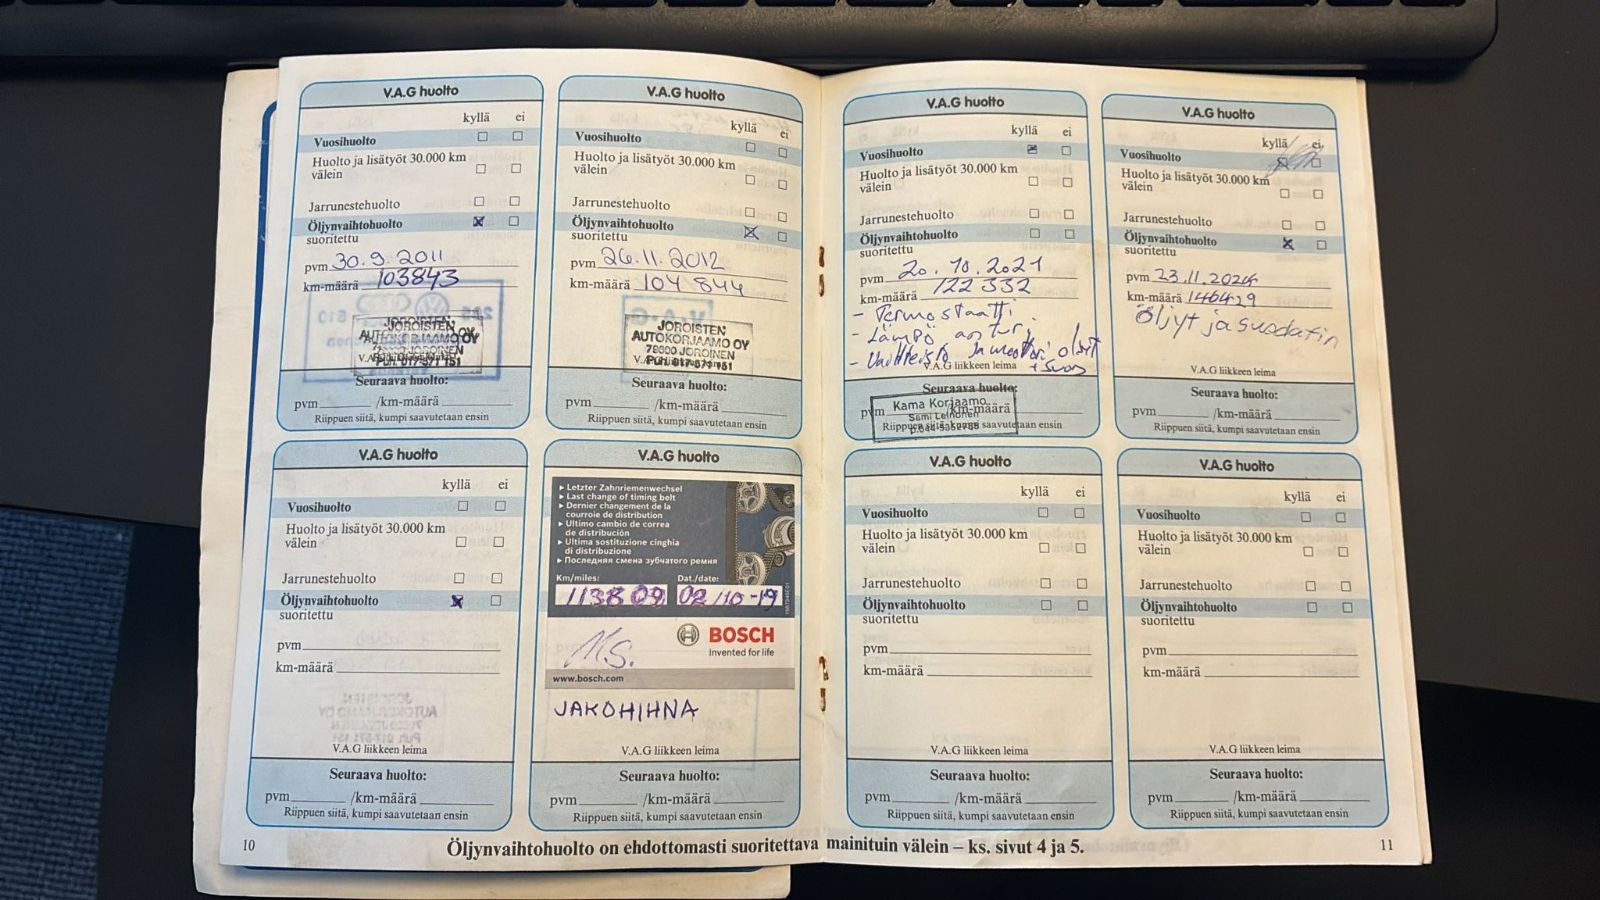 V.A.G huolto
kyllä ei
Vuosihuolto
Huolto ja lisätyöt 30.000 km
välein
Jarrunestehuolto
Öljynvaihtohuolto
suoritettu
pvm 30.9.2011
km-määrä 103843
JOROISTEN
AUTOKORJAAMO OY
79600 JOROINEN
Puh. 017-571 151
Seuraava huolto:
pvm /km-määrä
Riippuen siitä, kumpi saavutetaan ensin
V.A.G huolto
kyllä ei
Vuosihuolto
Huolto ja lisätyöt 30.000 km
välein
Jarrunestehuolto
Öljynvaihtohuolto
suoritettu
pvm 26.11.2012
km-määrä 104 844
JOROISTEN
AUTOKORJAAMO OY
79600 JOROINEN
Puh. 017-571 151
Seuraava huolto:
pvm /km-määrä
Riippuen siitä, kumpi saavutetaan ensin
V.A.G huolto
kyllä ei
Vuosihuolto
Huolto ja lisätyöt 30.000 km
välein
Jarrunestehuolto
Öljynvaihtohuolto
suoritettu
pvm
km-määrä
V.A.G liikkeen leima
Seuraava huolto:
pvm /km-määrä
Riippuen siitä, kumpi saavutetaan ensin
V.A.G huolto
▸ Letzter Zahnriemenwechsel
▸ Last change of timing belt
▸ Dernier changement de la
courroie de distribution
▸ Ultimo cambio de correa
de distribución
▸ Ultima sostituzione cinghia
di distribuzione
▸ Последняя смена зубчатого ремня
Km/miles: Dat./date:
113809 02/10-19
BOSCH
Invented for life
M.S.
www.bosch.com
JAKOHIHNA
V.A.G liikkeen leima
Seuraava huolto:
pvm /km-määrä
Riippuen siitä, kumpi saavutetaan ensin
10
V.A.G huolto
kyllä ei
Vuosihuolto
Huolto ja lisätyöt 30.000 km
välein
Jarrunestehuolto
Öljynvaihtohuolto
suoritettu
pvm 20.10.2021
km-määrä 122 332
- Termostaatti
- Lämpö anturi
- Vaihteisto ja moottori öljyt
V.A.G liikkeen leima
Seuraava huolto:
Kama Korjaamo
pvm /km-määrä
Sami Leinonen
Riippuen siitä, kumpi saavutetaan ensin
V.A.G huolto
kyllä ei
Vuosihuolto
Huolto ja lisätyöt 30.000 km
välein
Jarrunestehuolto
Öljynvaihtohuolto
suoritettu
pvm 23.11.2024
km-määrä 146429
Öljyt ja suodatin
V.A.G liikkeen leima
Seuraava huolto:
pvm /km-määrä
Riippuen siitä, kumpi saavutetaan ensin
V.A.G huolto
kyllä ei
Vuosihuolto
Huolto ja lisätyöt 30.000 km
välein
Jarrunestehuolto
Öljynvaihtohuolto
suoritettu
pvm
km-määrä
V.A.G liikkeen leima
Seuraava huolto:
pvm /km-määrä
Riippuen siitä, kumpi saavutetaan ensin
V.A.G huolto
kyllä ei
Vuosihuolto
Huolto ja lisätyöt 30.000 km
välein
Jarrunestehuolto
Öljynvaihtohuolto
suoritettu
pvm
km-määrä
V.A.G liikkeen leima
Seuraava huolto:
pvm /km-määrä
Riippuen siitä, kumpi saavutetaan ensin
Öljynvaihtohuolto on ehdottomasti suoritettava mainituin välein – ks. sivut 4 ja 5.
11